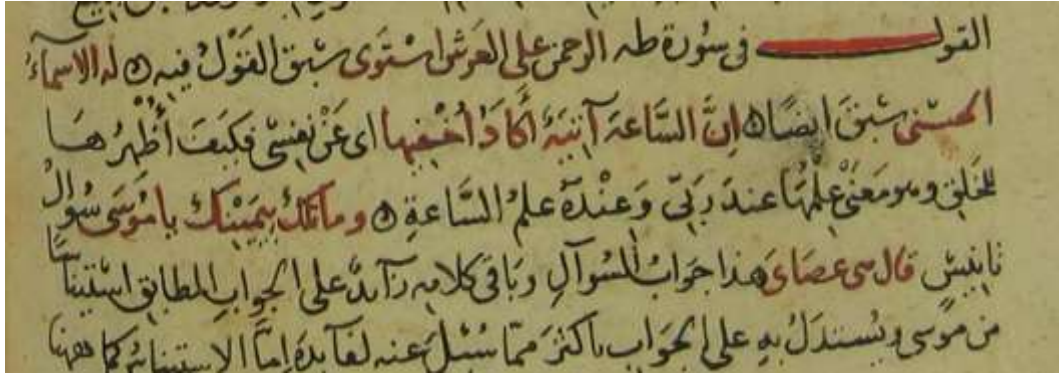 القول في سورة طه الرحمن على العرش استوى سبق القول فيه ه له الاسماء
الحسنى سبق ايضا ه ان الساعة آتية أكاد أخفيها اى عن نفسى فكيف أظهرها
للخلق وهو معنى علمها عند ربى وعنده علم الساعة ه وما تلك بيمينك ياموسى سؤال
تانيس قال هى عصاى هذا جواب السوآل وباقى كلامه زآيد على الجواب المطابق استيناسا
من موسى ويستدل به على الجواب باكثر مما سئل عنه لفآيدة إما الاستيناس كما ههنا